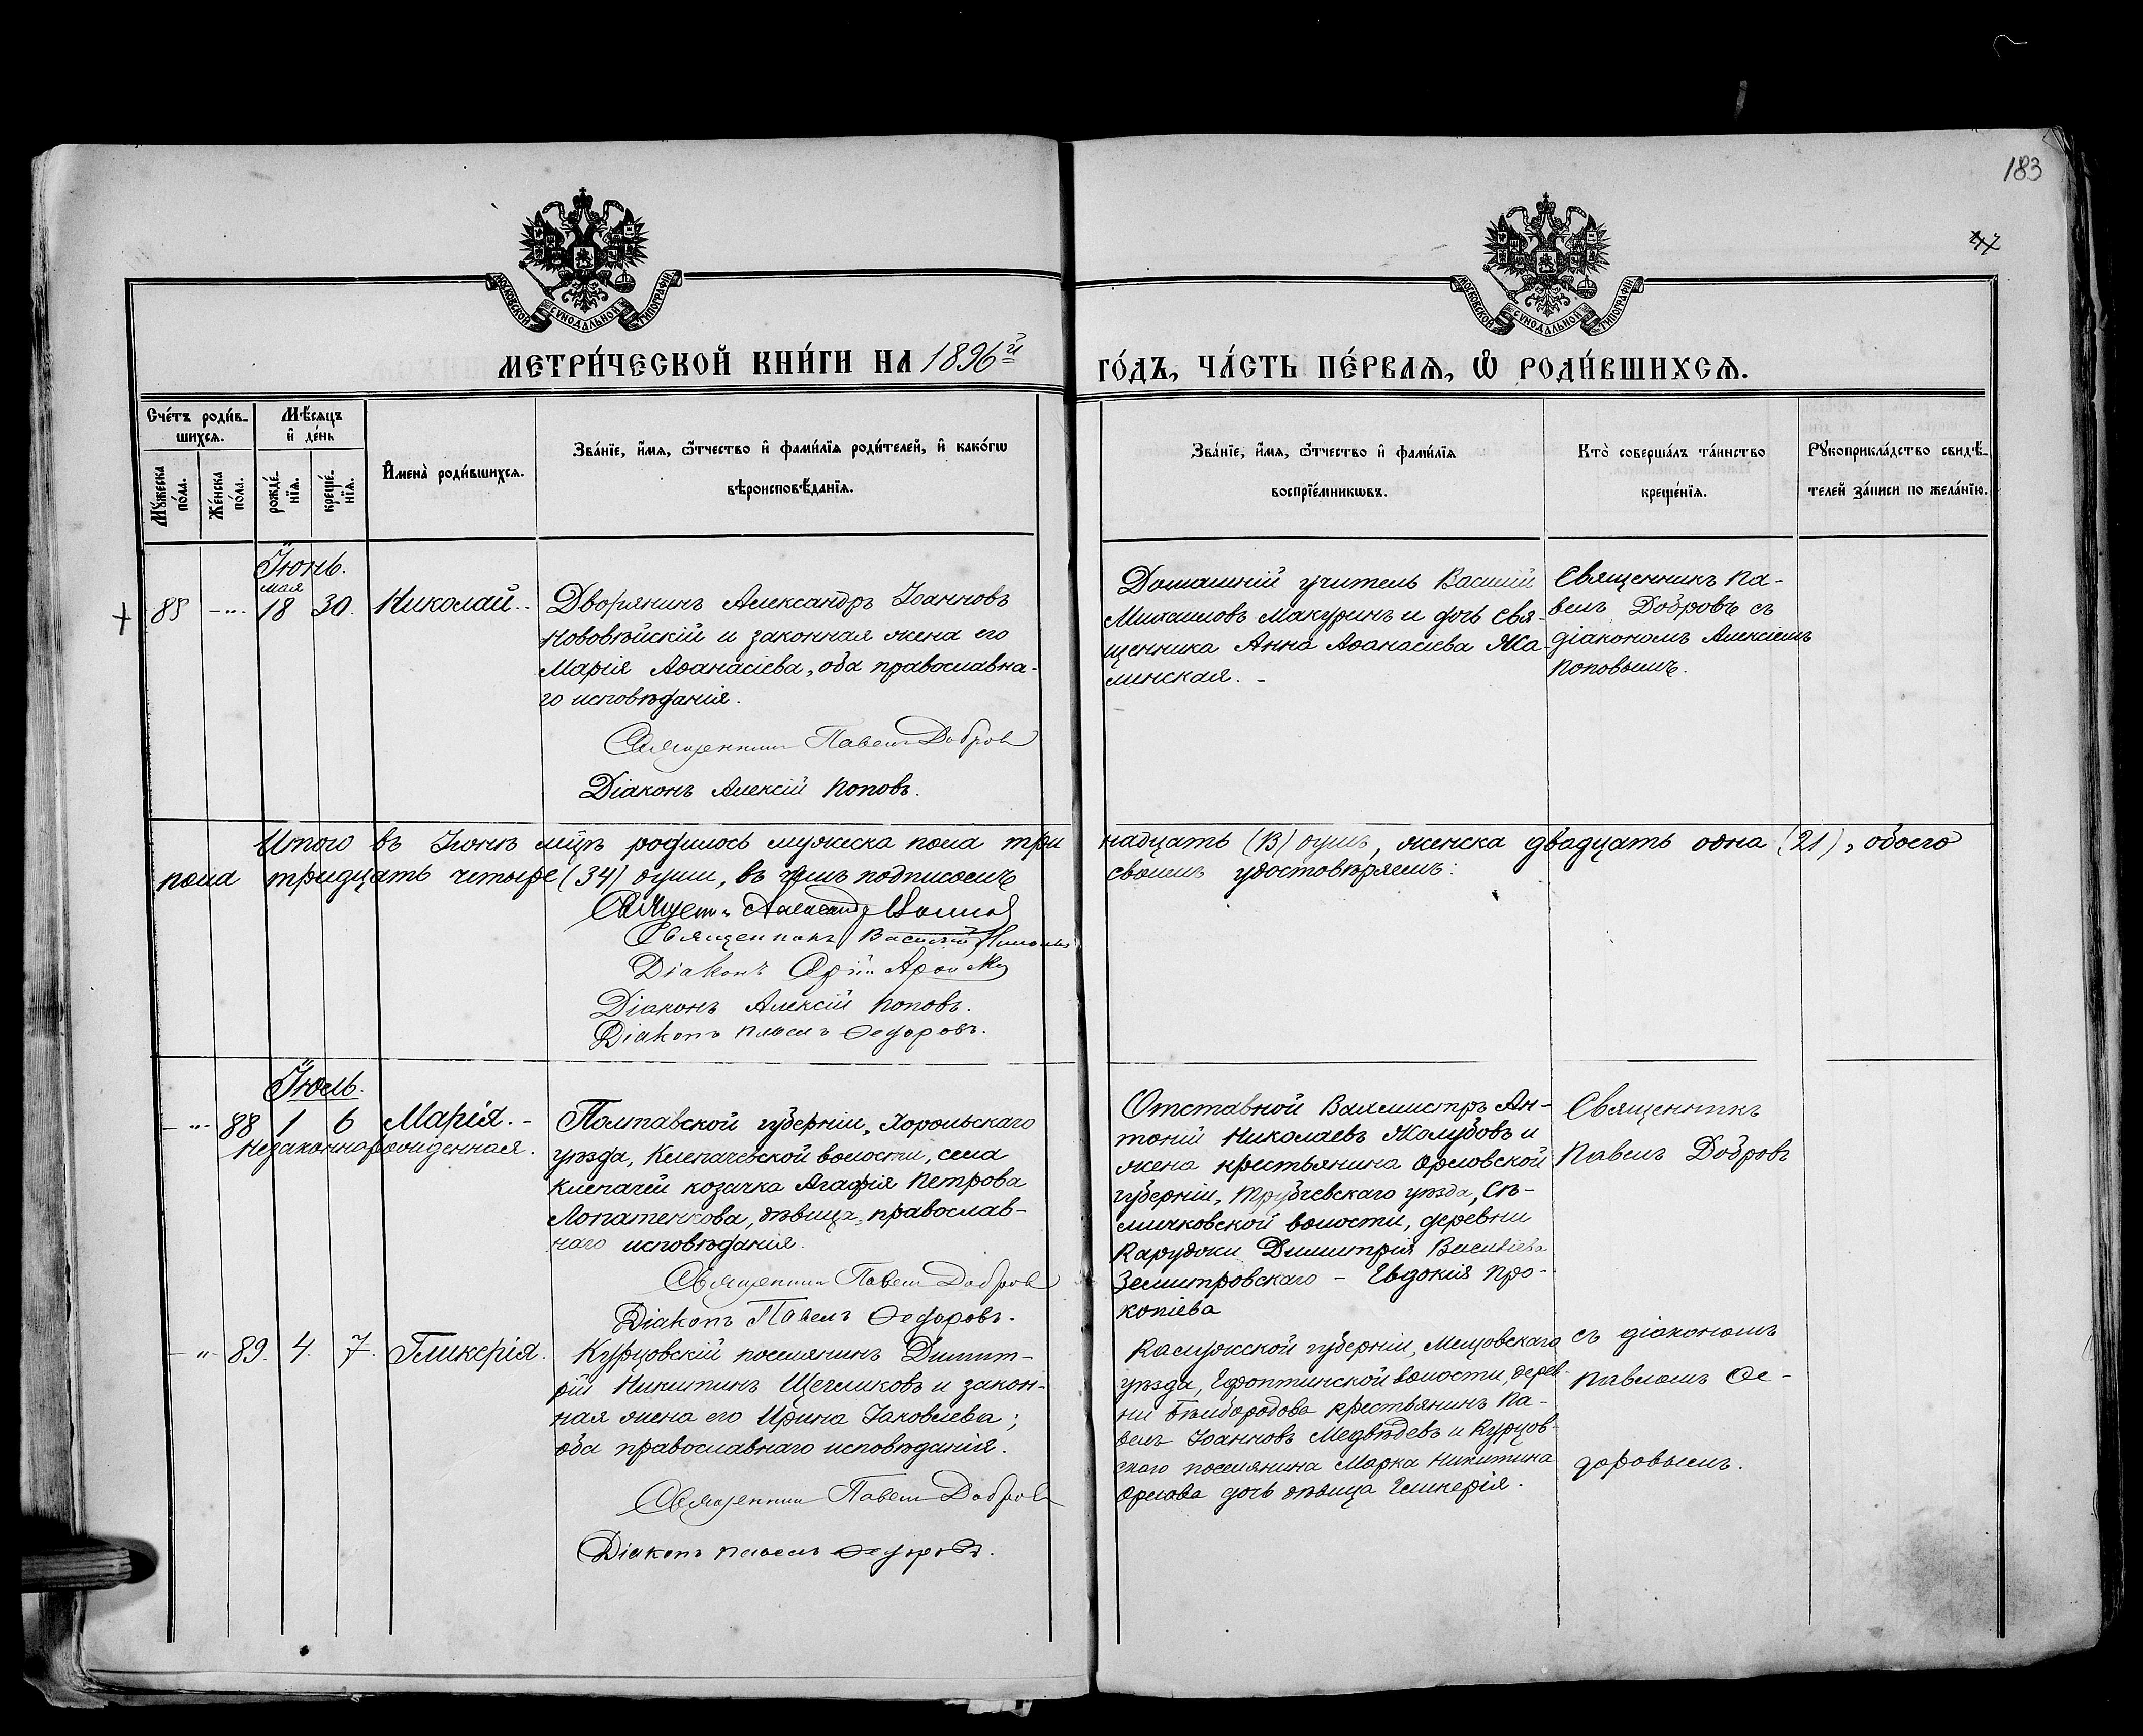 183
МОСКОВСКОЙ СѴНОДАЛЬНОЙ ТИПОГРАФІИ
МОСКОВСКОЙ СѴНОДАЛЬНОЙ ТИПОГРАФІИ
МЕТРИ́ЧЕСКОЙ КНИ́ГИ НА 1896й
ГО́ДЪ, ЧА́СТЬ ПЕ́РВАѦ, Ѡ РОДИ́ВШИХСѦ.
Сче́тъ роди́в-
шихсѧ.
Мꙋ́жеска по́ла.
Же́нска по́ла.
Мѣ́сѧцъ
и҆ де́нь
рожде́-
нїѧ.
креще́-
нїѧ.
И҆мена̀ роди́вшихсѧ.
Зва́нїе, и҆́мѧ, ѻ҆́тчество и҆ фами́лїѧ роди́телей, и҆ како́гѡ
вѣроисповѣ́данїѧ.
Зва́нїе, и҆́мѧ, ѻ҆́тчество и҆ фами́лїѧ
воспрїе́мникѡвъ.
Кто̀ соверша́лъ та́инство
креще́нїѧ.
Рꙋкоприкла́дство свидѣ́-
телей за́писи по жела́нїю.
Іюнь.
мая
85 -"- 18 30. Николай.
Дворянинъ Александръ Іоанновъ
Нововѣйскій и законная жена его
Марія Аѳанасіева, оба православна-
го исповѣданія.
Священникъ Павелъ Добровъ
Діаконъ Алексій Поповъ.
Домашній учитель Василій
Михаиловъ Макуринъ и дочь свя-
щенника Анна Аѳанасіева Жа-
линская. -
Священникъ Па-
велъ Добровъ съ
діакономъ Алексіемъ
Поповымъ.
Итого въ Іюнѣ мцѣ родилось мужеска пола три
надцать (13) душъ, женска двадцать одна (21), обоего
пола тридцать четыре (34) души, въ чемъ подписомъ
своимъ удостовѣряемъ:
Священ. Александр
Священникъ Василій
Діаконъ
Діаконъ Алексій Поповъ.
Діаконъ Павелъ Ѳедоровъ.
Іюль.
-"- 88 1 6 Марія. -
Незаконнорожденная.
Полтавской губерніи, Хорольскаго
уѣзда, Клепачевской волости, села
Клепачей козачка Агафія Петрова
Лопатенкова, дѣвица, православ-
наго исповѣданія.
Священникъ Павелъ Добровъ
Діаконъ Павелъ Ѳедоровъ.
Отставной Вахмистръ Ан-
тоній Николаевъ Жолубовъ и
жена крестьянина Орловской
губерніи, Трубчевскаго уѣзда, Сѣ-
мичковской волости, деревни
Карудоки Димитрія Василіева
Землитровскаго - Евдокія Про-
копіева
Священникъ
Павелъ Добровъ
съ діакономъ
Павломъ Ѳе-
доровымъ.
-"- 89. 4. 7. Гликерія.
Курцовскій поселянинъ Димит-
рій Никитинъ Щегликовъ и закон-
ная жена его Ирина Іаковлева;
оба православнаго исповѣданія.
Священникъ Павелъ Добровъ
Діаконъ Павелъ Ѳедоровъ.
Калужской губерніи, Мещовскаго
уѣзда, волости, дерев-
ни Бѣлбородова крестьянинъ Па-
велъ Іоанновъ Медвѣдевъ и Курцов-
скаго поселянина Марка Никитина
Орлова дочь дѣвица Гликерія.